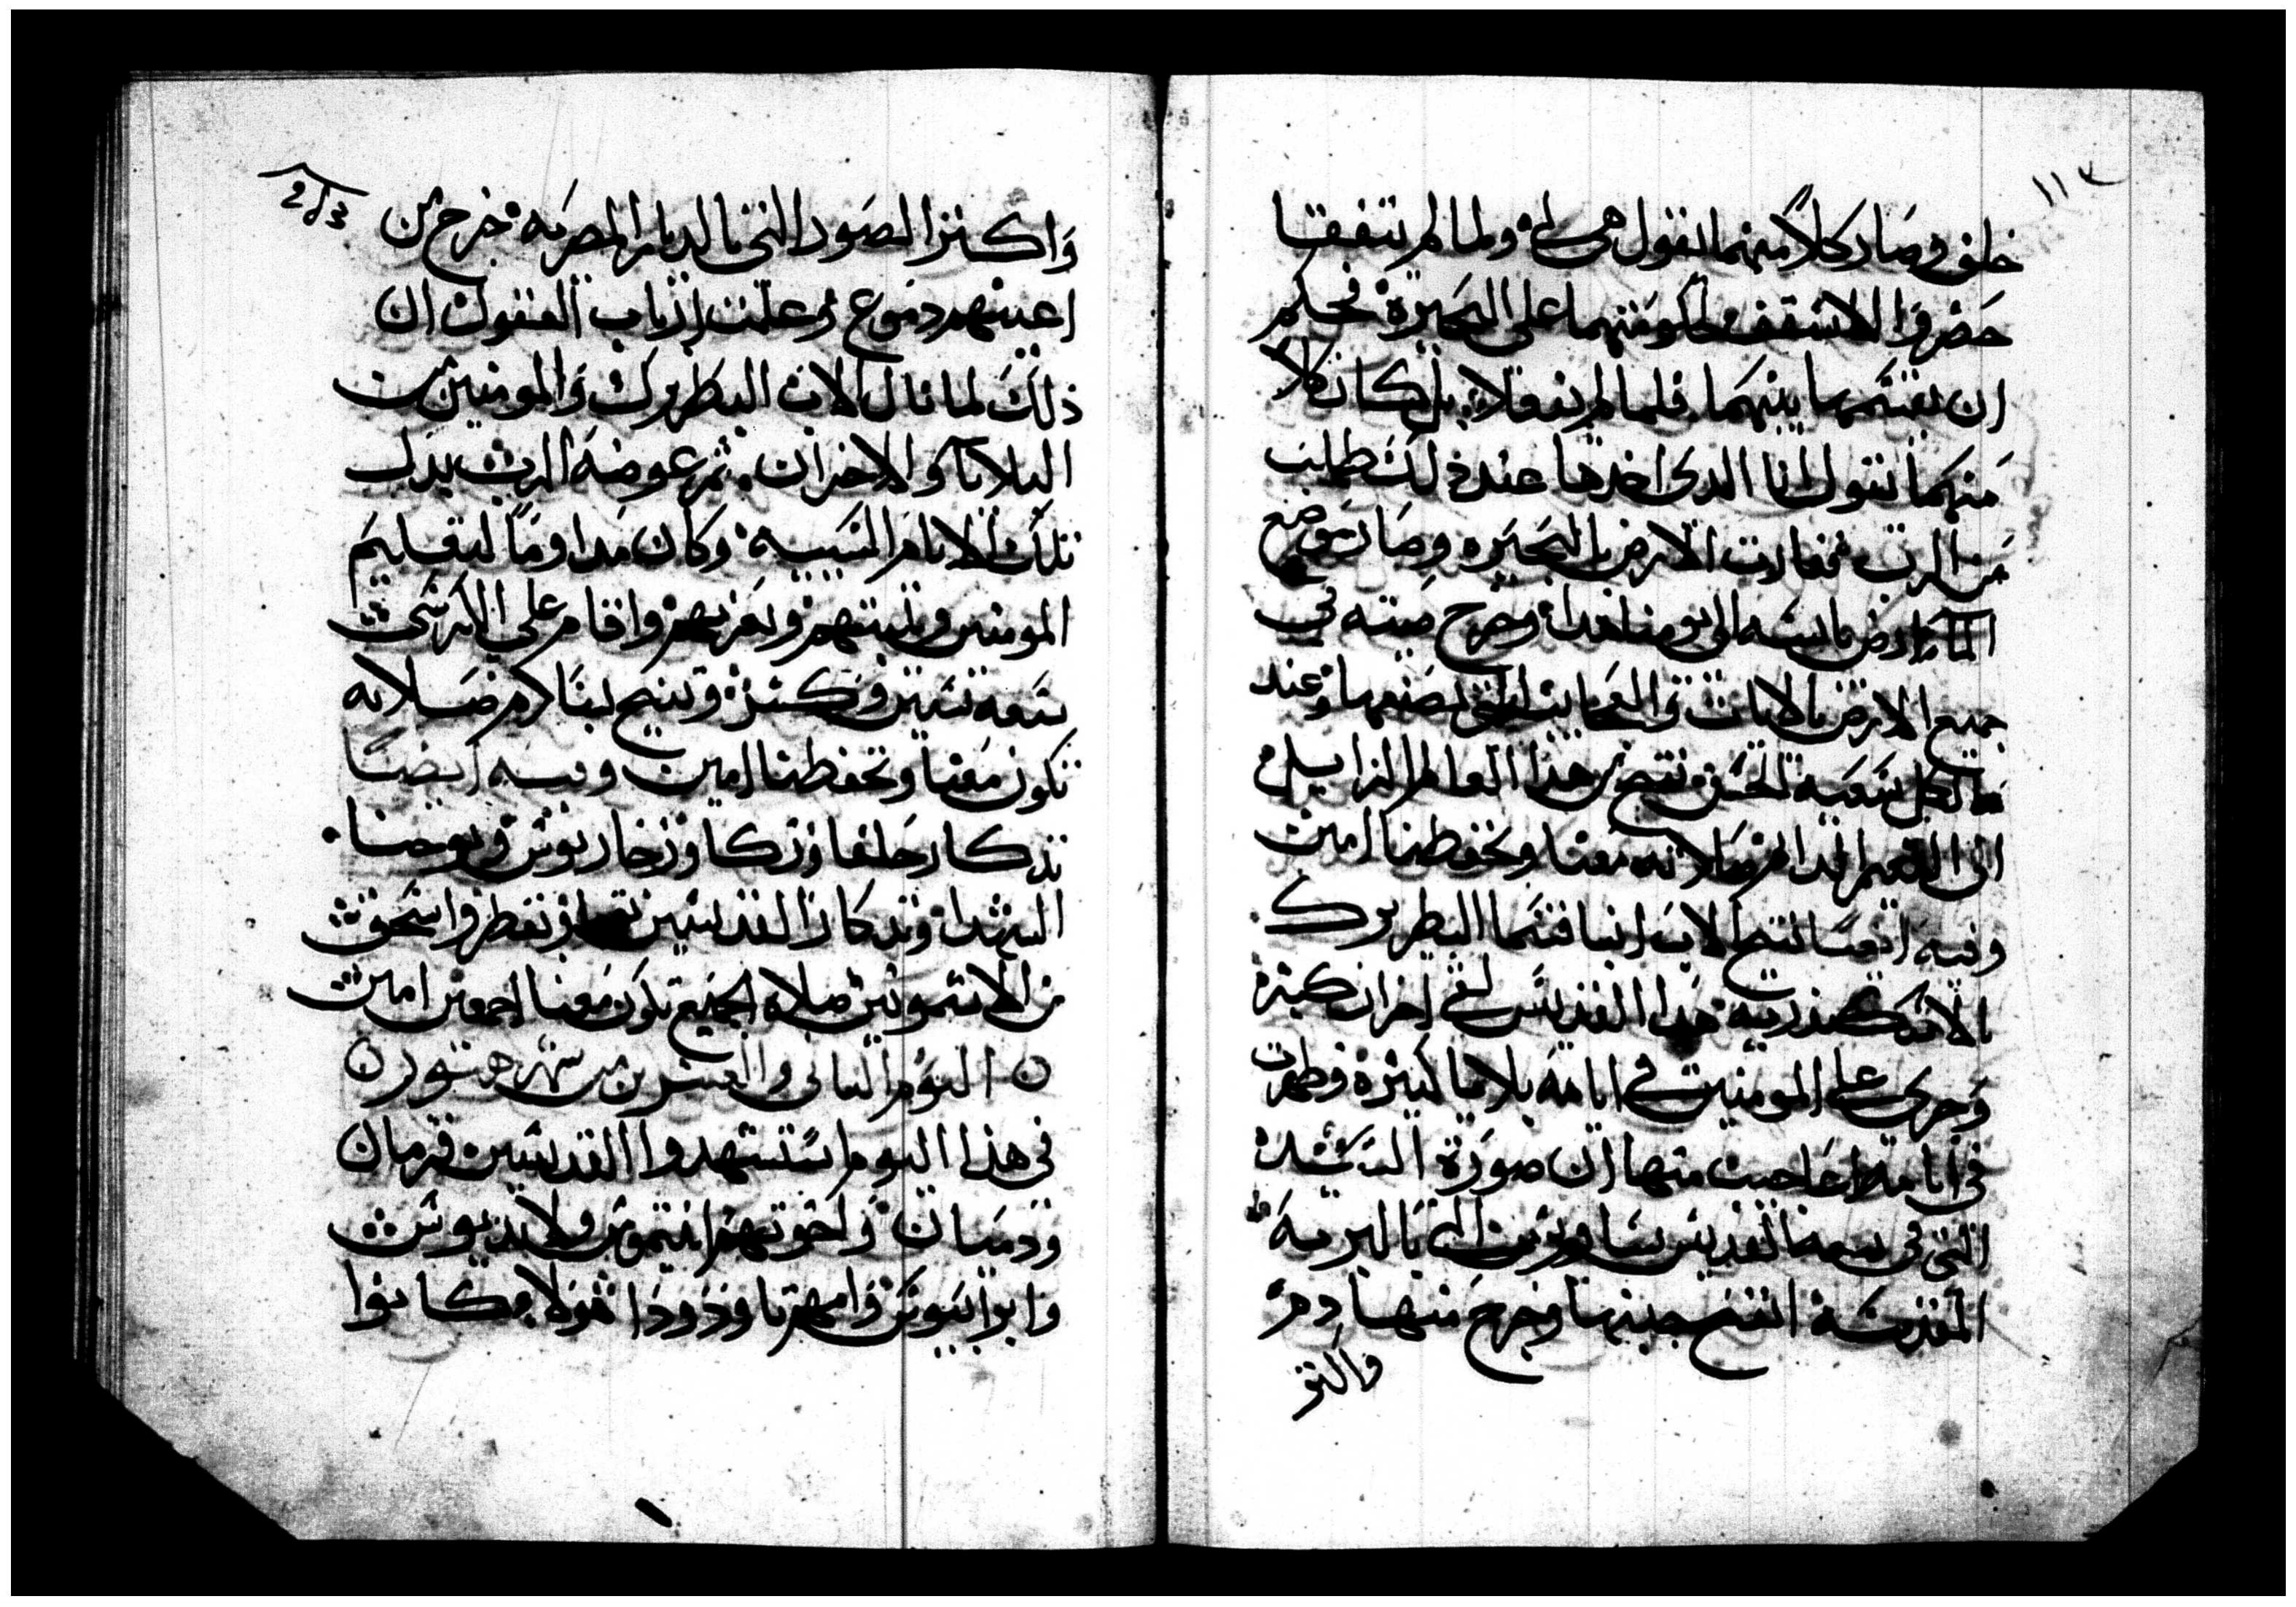 ١١٣
خلف وصار كلاً منهما يقول هى لى ولما لم يتفقا
حضروا الاسقف حكومتهما على البحيرة فحكم
ان يقتسمها بينهما فلما لم يفعلا بل كان كلا
منهما يقول انا الدى اخدها عند ذلك طلب
من الرب فصارت الارض بالبحيره وصار موضع
الما ارض يابسه الى يومنا هدا وخرج صيته في
جميع الارض بالايات والعجايب التى يصنعها وعند
ما اكمل سعيه الحسن تنيح من هذا العالم الزايل
الى النعيم الدايم صلاته معنا وتحفظنا امين
وفيه ايضا تنيح الاب انبا قسما البطريرك
بالاسكندريه هدا القديس لقى احزان كبيرة
وجرى على المومنين فى ايامه بلايا كبيرة وظهرت
فى ايامه اعاجيب منها ان صورة السيدة
التى فى بيعه القديس ساويرس التى بالبريه
المقدسة انفتح جنبها وخرج منها دم
والتو
213
واكثر الصور التى بالديار المصريه خرج من
اعينهم دموع وعلمت ارباب العقول ان
ذلك لما نال الاب البطريرك والمومنين من
البلايا والاحزان ثم عوضه الرب بدل
تلك الايام المتعبه وكان مداوما لتعليم
المومنين وتثبيتهم وتعزيتهم واقام على الكرسى
سبعه سنين وكسر وتنيح بسلام صلاته
تكون معنا وتحفظنا امين وفيه ايضا
تدكار حلفا وزكا وزخاريوس ويوحنا
الشهدا وتدكار القديسين توتقطر واسحق
من الاشمونين صلاة الجميع تكون معنا اجمعين امين
اليوم التانى والعشرين من شهر هتور
فى هذا اليوم استشهدوا القديسين قزمان
ودميان واخوتهم انتيموس ولانديوس
وابرانيوس وامهم تاودودا هولاء كانوا